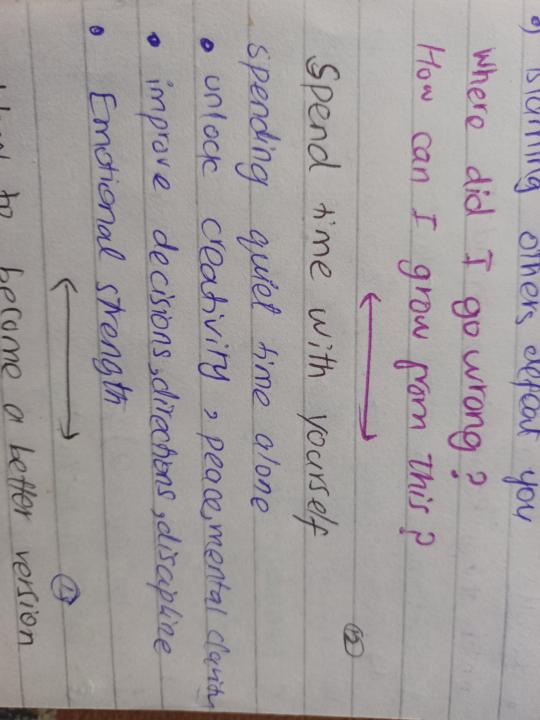 9) blaming others defeat you
Where did I go wrong?
How can I grow from this?
Spend time with yourself
12
Spending quiet time alone
• unlock creativity, peace, mental clarity
• improve decisions, directions, discipline
• Emotional strength
to become a better version